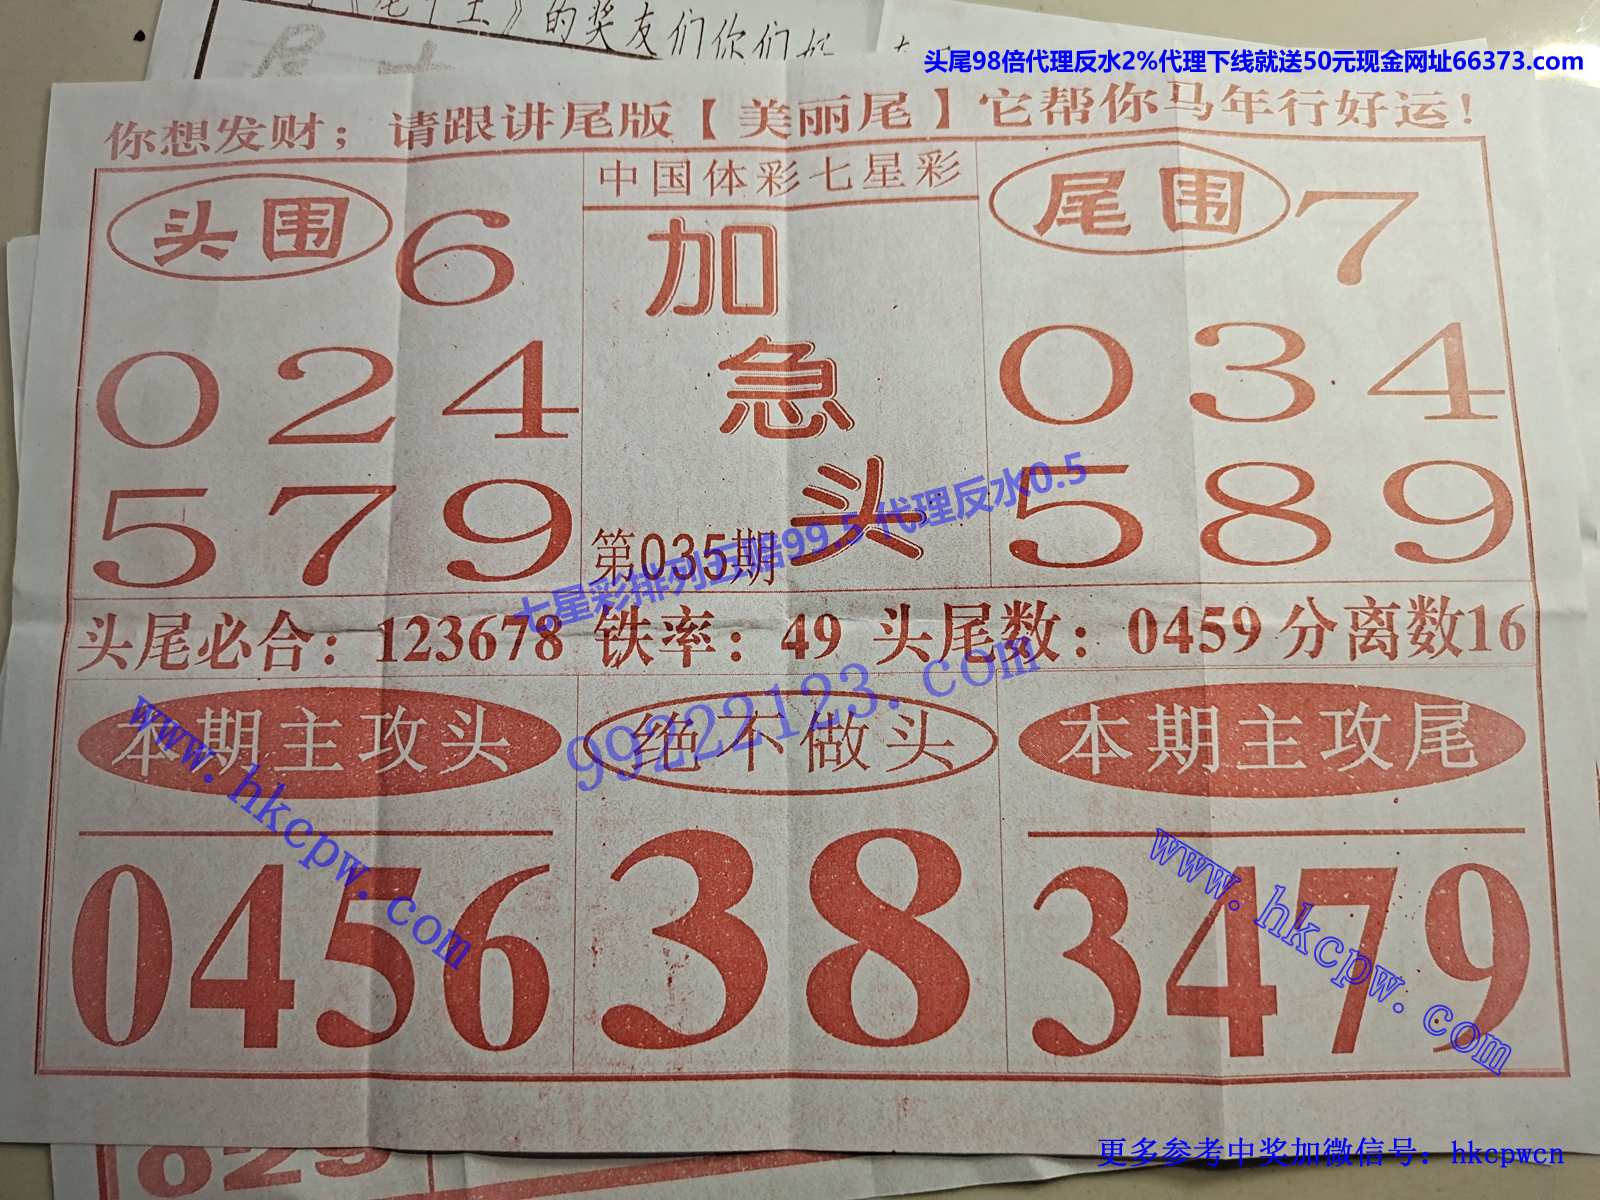 《尾十王》的奖友们你们好
头尾98倍代理反水2%代理下线就送50元现金网址66373.com
你想发财；请跟讲尾版【美丽尾】它帮你马年行好运！
中国体彩七星彩
头围 6
024
579
加
急
头
第035期
尾围 7
034
589
七星彩排列五赔99.5 代理反水0.5
头尾必合：123678 铁率：49 头尾数：0459分离数16
99222123.com
本期主攻头
0456
绝不做头
38
本期主攻尾
3479
www.hkcpw.com
www.hkcpw.com
029
更多参考中奖加微信号：hkcpwcn